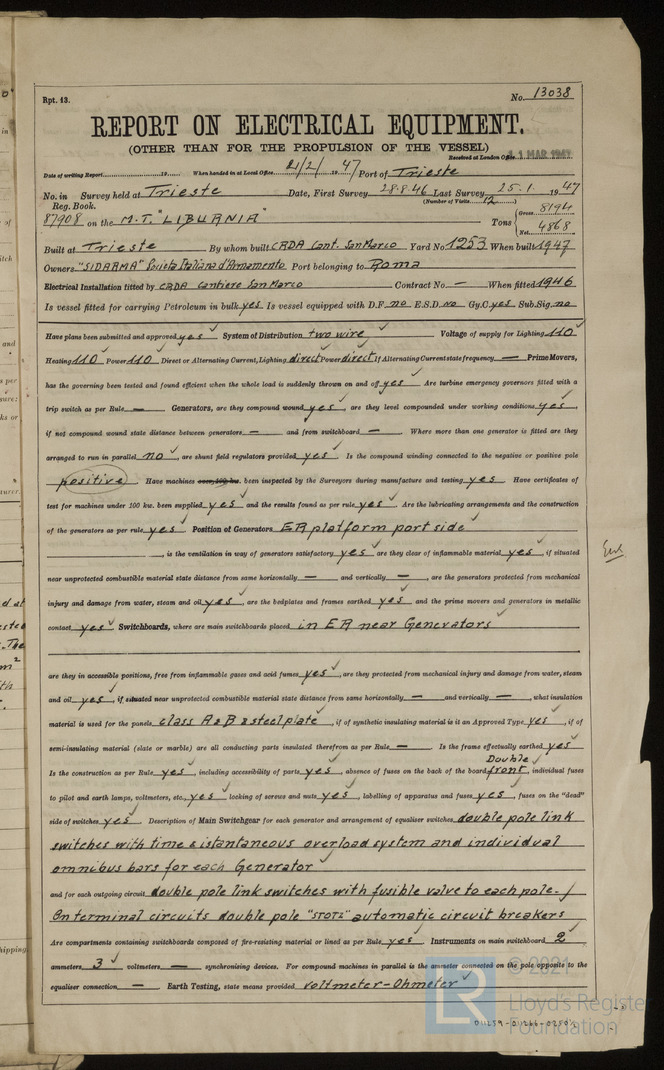 Rpt. 13.
No. 13038
REPORT ON ELECTRICAL EQUIPMENT.
(OTHER THAN FOR THE PROPULSION OF THE VESSEL)
Received at London Office 11 MAR 1947
Date of writing Report 19 When handed in at Local Office 21/2/ 1947 Port of Trieste
No. in Survey held at Trieste Date, First Survey 28.8.46 Last Survey 25.1. 1947
Reg. Book. (Number of Visits 12)
87908 on the M.T. "LIBURNIA" Tons { Gross 8194
Net 4868
Built at Trieste By whom built CRDA Cant. San Marco Yard No. 1253 When built 1947
Owners "SIDARMA" Societa Italiana d'Armamento Port belonging to Roma
Electrical Installation fitted by CRDA Cantiere San Marco Contract No. — When fitted 1946
Is vessel fitted for carrying Petroleum in bulk yes Is vessel equipped with D.F. no E.S.D. no Gy.C. yes Sub.Sig. no
Have plans been submitted and approved yes System of Distribution two wire Voltage of supply for Lighting 110
Heating 110 Power 110 Direct or Alternating Current, Lighting direct Power direct If Alternating Current state frequency — Prime Movers,
has the governing been tested and found efficient when the whole load is suddenly thrown on and off yes Are turbine emergency governors fitted with a
trip switch as per Rule — Generators, are they compound wound yes, are they level compounded under working conditions yes,
if not compound wound state distance between generators — and from switchboard — Where more than one generator is fitted are they
arranged to run in parallel no, are shunt field regulators provided yes Is the compound winding connected to the negative or positive pole
positive Have machines over 100 kw. been inspected by the Surveyors during manufacture and testing yes Have certificates of
test for machines under 100 kw. been supplied yes and the results found as per rule yes Are the lubricating arrangements and the construction
of the generators as per rule yes Position of Generators ER platform port side
, is the ventilation in way of generators satisfactory yes are they clear of inflammable material yes, if situated
near unprotected combustible material state distance from same horizontally — and vertically —, are the generators protected from mechanical
injury and damage from water, steam and oil yes, are the bedplates and frames earthed yes and the prime movers and generators in metallic
contact yes Switchboards, where are main switchboards placed in ER near Generators
are they in accessible positions, free from inflammable gases and acid fumes yes, are they protected from mechanical injury and damage from water, steam
and oil yes, if situated near unprotected combustible material state distance from same horizontally — and vertically —, what insulation
material is used for the panels class A & B & steel plate, if of synthetic insulating material is it an Approved Type yes, if of
semi-insulating material (slate or marble) are all conducting parts insulated therefrom as per Rule — Is the frame effectually earthed yes
Double
Is the construction as per Rule yes, including accessibility of parts yes, absence of fuses on the back of the board front, individual fuses
to pilot and earth lamps, voltmeters, etc., yes locking of screws and nuts yes, labelling of apparatus and fuses yes, fuses on the "dead"
side of switches yes Description of Main Switchgear for each generator and arrangement of equaliser switches double pole link
switches with time & istantaneous overload system and individual
omnibus bars for each Generator
and for each outgoing circuit double pole link switches with fusible valve to each pole.
On terminal circuits double pole "STOTZ" automatic circuit breakers
Are compartments containing switchboards composed of fire-resisting material or lined as per Rule yes Instruments on main switchboard 2
ammeters 3 voltmeters — synchronising devices. For compound machines in parallel is the ammeter connected on the pole opposite to the
equaliser connection — Earth Testing, state means provided voltmeter-Ohmeter
© 2021
LR
Lloyd's Register
Foundation